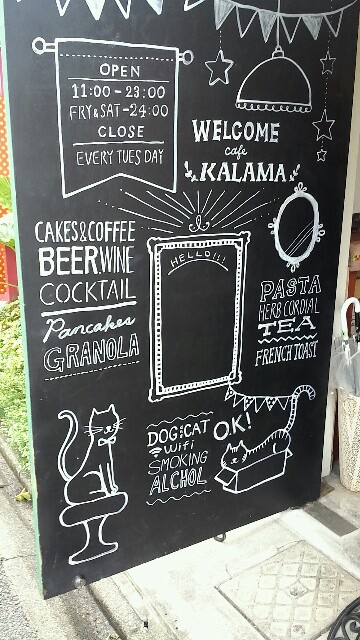 OPEN
11:00-23:00
FRY&SAT-24:00
CLOSE
EVERY TUESDAY
WELCOME
cafe
KALAMA
CAKES&COFFEE
BEER WINE
COCKTAIL
Pancakes
GRANOLA
HELLO!!!
PASTA
HERB CORDIAL
TEA
FRENCH TOAST
DOG CAT
wifi
SMOKING
ALCHOL
OK!